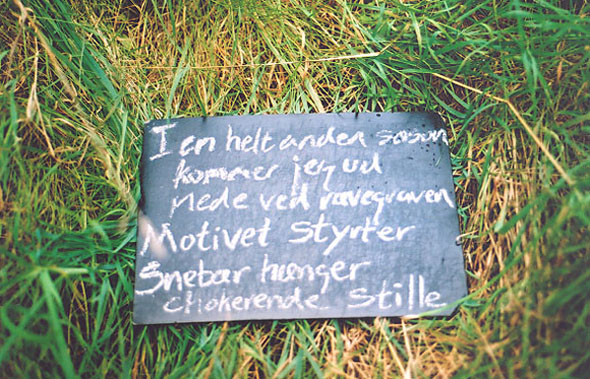 I en helt anden sæson
kommer jeg ud
nede ved ravegraven
Motivet styrter
Snebar hænger
chokerende stille